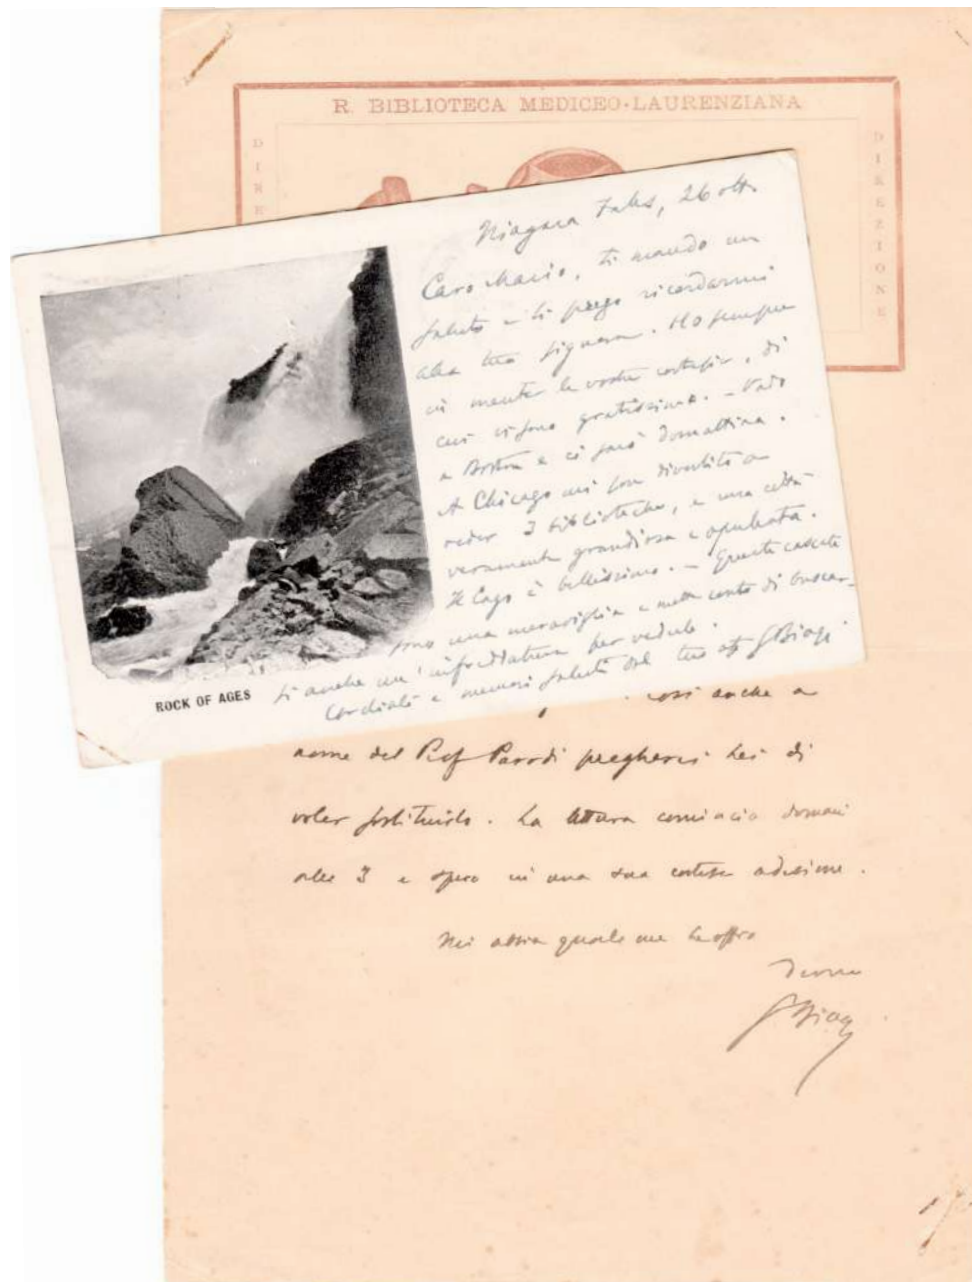 R. BIBLIOTECA MEDICEO-LAURENZIANA
DIRE
DIREZIONE
Niagara Falls, 26 ott.
Caro Mario, ti mando un
saluto e ti prego ricordarmi
alla tua signora. Ho sempre
in mente le vostre cortesie, di
cui vi sono gratissimo. - Vado
a Boston e ci sarò domattina.
A Chicago mi son divertito a
veder 3 biblioteche, e una città
veramente grandiosa e opulenta.
Il Lago è bellissimo. - Queste cascate
sono una meraviglia e mette conto di buscar-
si anche un'infreddatura per vederle.
Cordiali e memori saluti dal tuo aff GBiagi
ROCK OF AGES
così anche a
nome del Prof Parodi pregherei Lei di
voler sostituirlo. La lettura comincia domani
alle 3 e spero in una sua cortese adesione.
Mi abbia quale me Le offro
Devmo
GBiagi